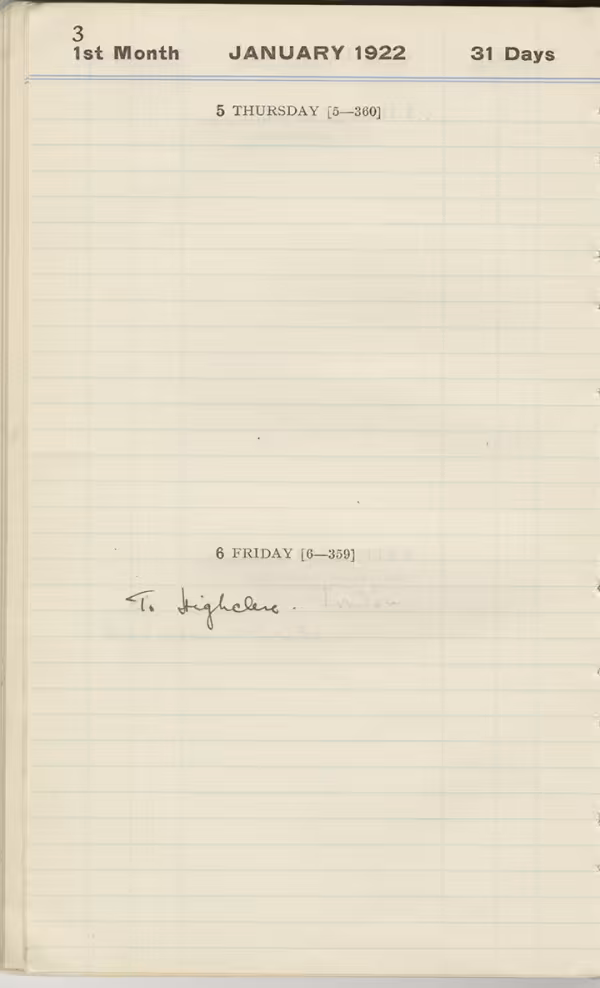 3
1st Month JANUARY 1922 31 Days
5 THURSDAY [5—360]
6 FRIDAY [6—359]
To Highclere.